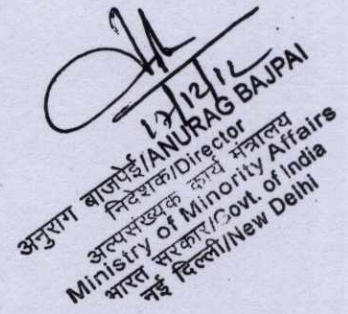 17/12/12
अनुराग बाजपेई/ANURAG BAJPAI
निदेशक/Director
अल्पसंख्यक कार्य मंत्रालय
Ministry of Minority Affairs
भारत सरकार/Govt. of India
नई दिल्ली/New Delhi